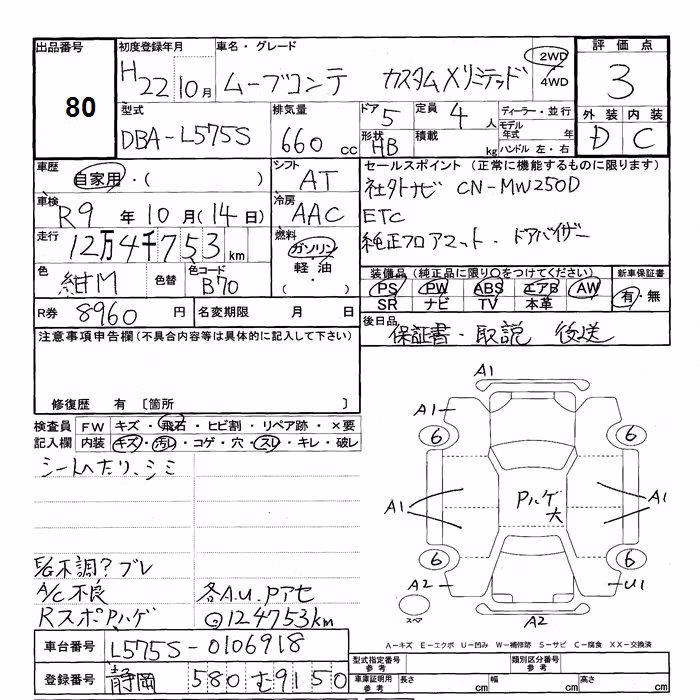 出品番号
80
初度登録年月
H22 10月
車名・グレード
ムーブコンテ カスタムXリミテッド
2WD
4WD
評価点
3
外装 内装
D C
型式
DBA-L575S
排気量
660 cc
ドア 5
形状 HB
定員 4 人
積載 kg
ディーラー・並行
モデル年式 年
ハンドル 左・右
車歴
自家用・( )
シフト
AT
車検
R9 年 10 月 (14 日)
冷房
AAC
走行
12万4千753 km
燃料
ガソリン
軽油
・( )
色
紺M
色替
色コード
B70
R券 8960 円
名変期限 月 日
セールスポイント (正常に機能するものに限ります)
社外ナビ CN-MW250D
ETC
純正フロアマット・ドアバイザー
装備品(純正品に限り○をつけてください)
新車保証書
PS PW ABS エアB AW
SR ナビ TV 本革
有・無
後日品
保証書・取説 後送
注意事項申告欄(不具合内容等は具体的に記入して下さい)
修復歴 有 〔箇所 〕
検査員記入欄
FW キズ・飛石・ヒビ割・リペア跡・×要
内装 キズ・汚レ・コゲ・穴・スレ・キレ・破レ
シートへたり、シミ
E/G不調?ブレ
A/C不良
RスポPハゲ
各A.U.Pアセ
124753km
A1
A1
6
6
A1
A1
Pハゲ
大
6
6
A2
U1
A2
スペア
A-キズ E-エクボ U-凹み W-補修跡 S-サビ C-腐食 XX-交換済
車台番号
L575S-0106918
登録番号
静岡 580 む 9150
型式指定番号
参考
類別区分番号
参考
車庫証明用
参考
長さ cm
幅 cm
高さ cm